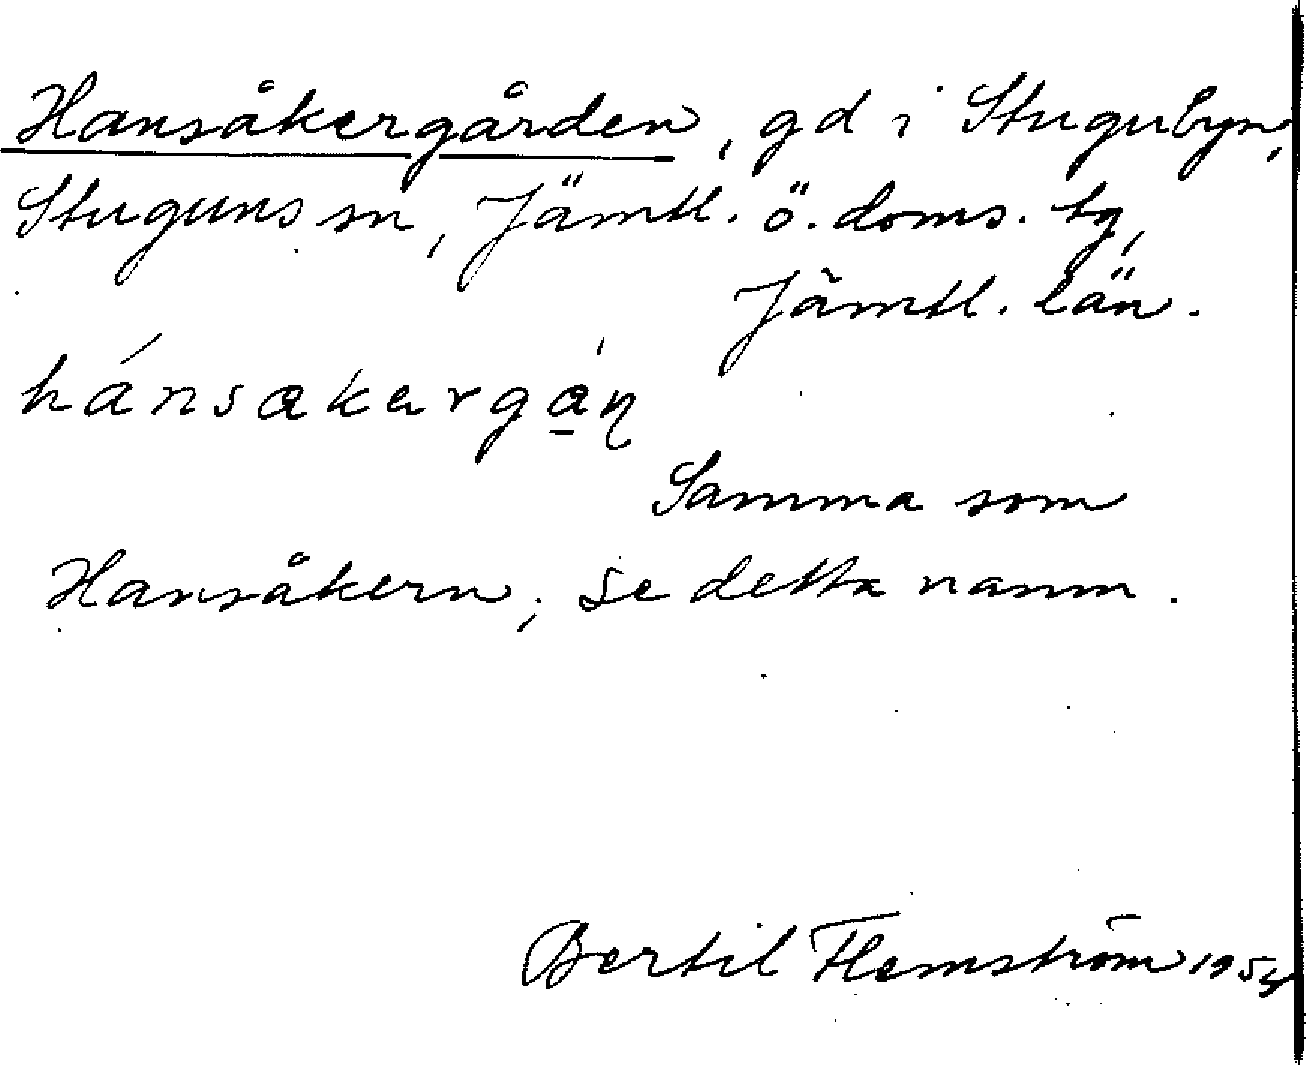 Hansåkergården, gd i Stugubyn,
Stuguns sn, Jämtl. ö. doms. tg,
Jämtl. län.
hánsakargạ̀ṇ
Samma som
Hansåkern, se detta namn.
Bertil Flemström 1954